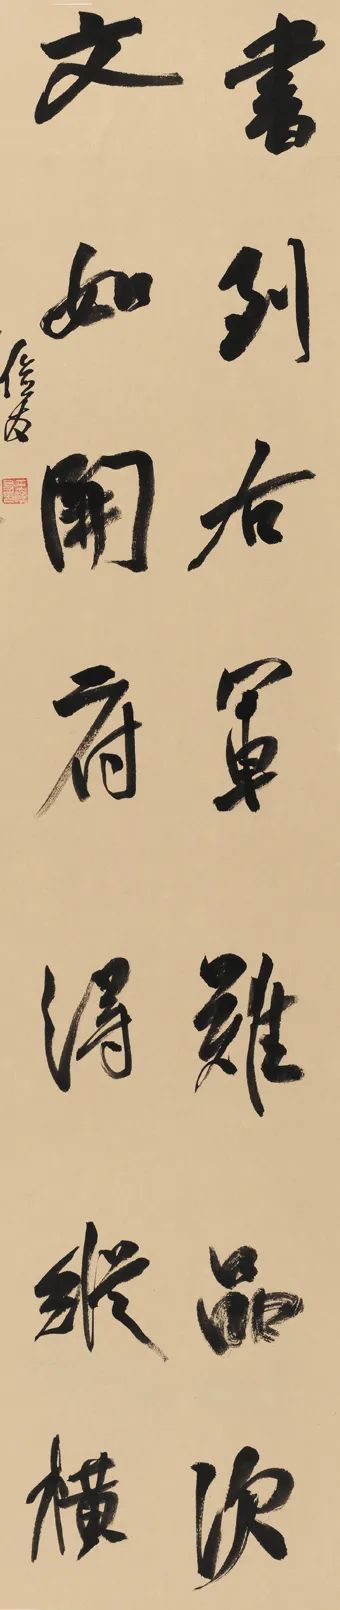 書到右軍難品次
文如開府得縱橫
儉友